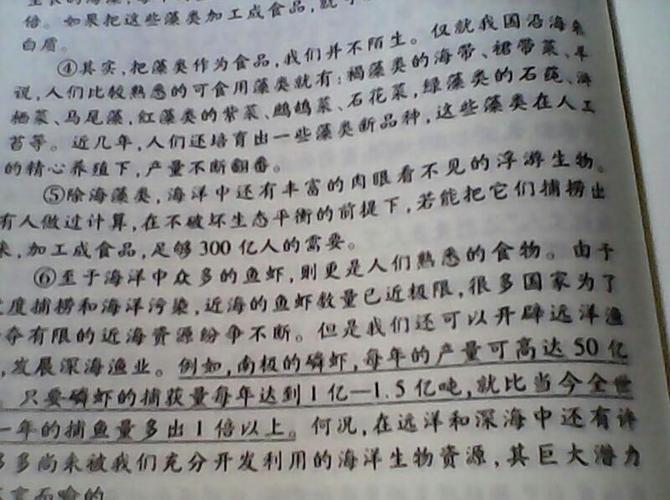 倍。如果把这些藻类加工成食品,就
白眉。
④其实,把藻类作为食品,我们并不陌生。仅就我国沿海来
说,人们比较熟悉的可食用藻类就有:褐藻类的海带、裙带菜、羊
栖菜、马尾藻,红藻类的紫菜、鹧鸪菜、石花菜,绿藻类的石莼、浒
苔等。近几年,人们还培育出一些藻类新品种,这些藻类在人工
的精心养殖下,产量不断翻番。
⑤除海藻类,海洋中还有丰富的肉眼看不见的浮游生物。
有人做过计算,在不破坏生态平衡的前提下,若能把它们捕捞出
来,加工成食品,足够300亿人的需要。
⑥至于海洋中众多的鱼虾,则更是人们熟悉的食物。由于
度捕捞和海洋污染,近海的鱼虾数量已近极限,很多国家为了
夺有限的近海资源纷争不断。但是我们还可以开辟远洋渔
,发展深海渔业。例如,南极的磷虾,每年的产量可高达50亿
。只要磷虾的捕获量每年达到1亿—1.5亿吨,就比当今全世
一年的捕鱼量多出1倍以上。何况,在远洋和深海中还有许
多尚未被我们充分开发利用的海洋生物资源,其巨大潜力
言而喻的